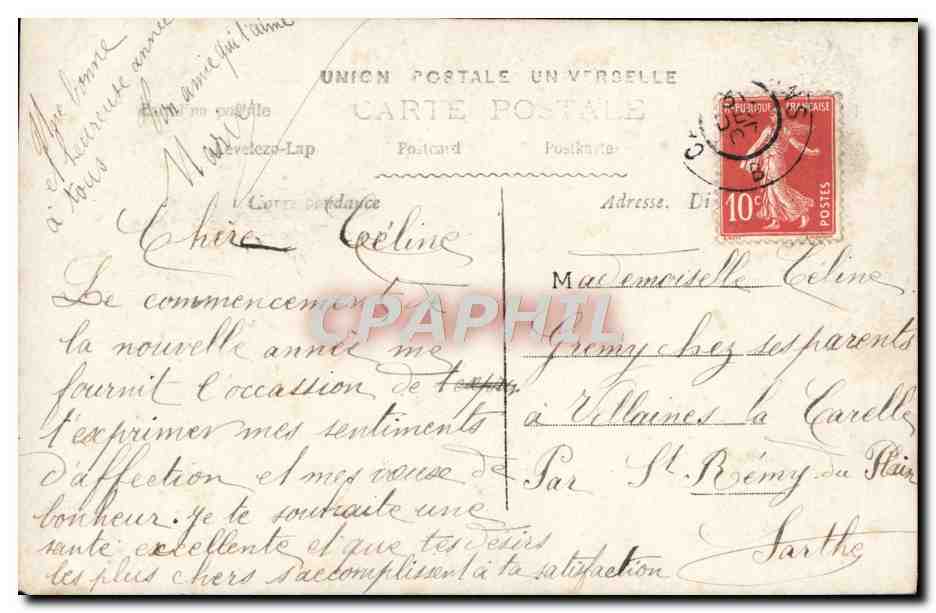 Une bonne
et heureuse année
à tous
Ton amie qui t'aime
Marie
UNION POSTALE UNIVERSELLE
CARTE POSTALE
postale
Levelezo-Lap Postcard Postkarte
Correspondance
Adresse.
RÉPUBLIQUE FRANÇAISE
10c POSTES
DEC
07
Chère Céline
Le commencement de
la nouvelle année me
fournit l'occassion de
t'exprimer mes sentiments
d'affection et mes vœuse de
bonheur. Je te souhaite une
santé excellente et que tes désirs
les plus chers s'accomplissent à ta satisfaction
Mademoiselle Céline
Gremy chez ses parents
à Villaines la Carelle
Par St Rémy du Plain
Sarthe
CPAPHIL